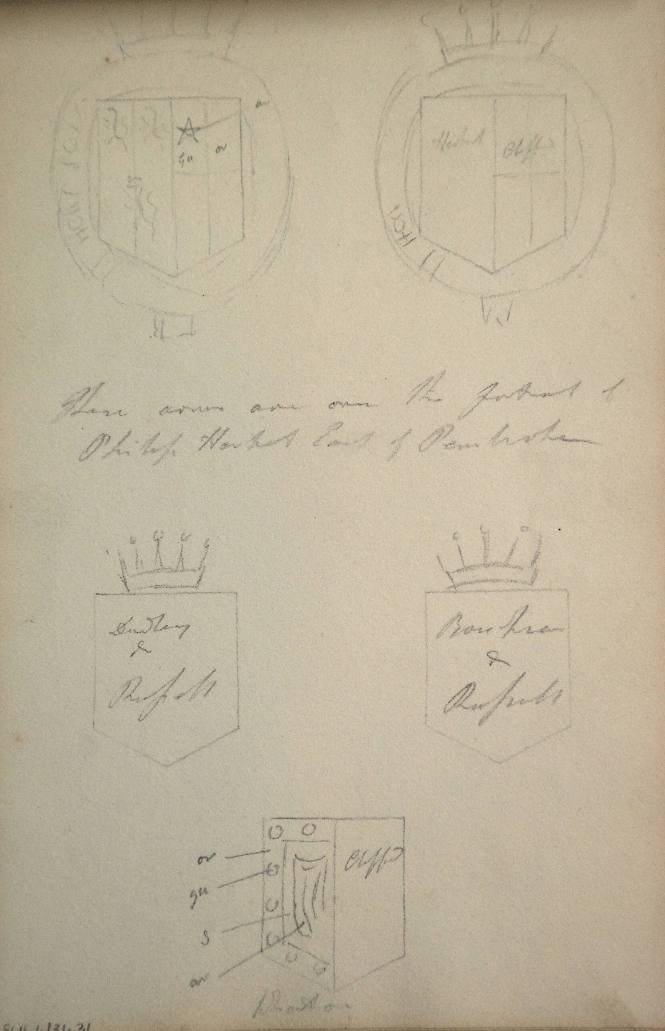 ar
gu or
HONI SOI
Herbert Cliff
HONI
These arms are over the portrait of
Philip Herbert Earl of Pembroke
Dudley
&
Russell
Bourchier
&
Russell
or
Cliff
gu
S
ar
Wharton